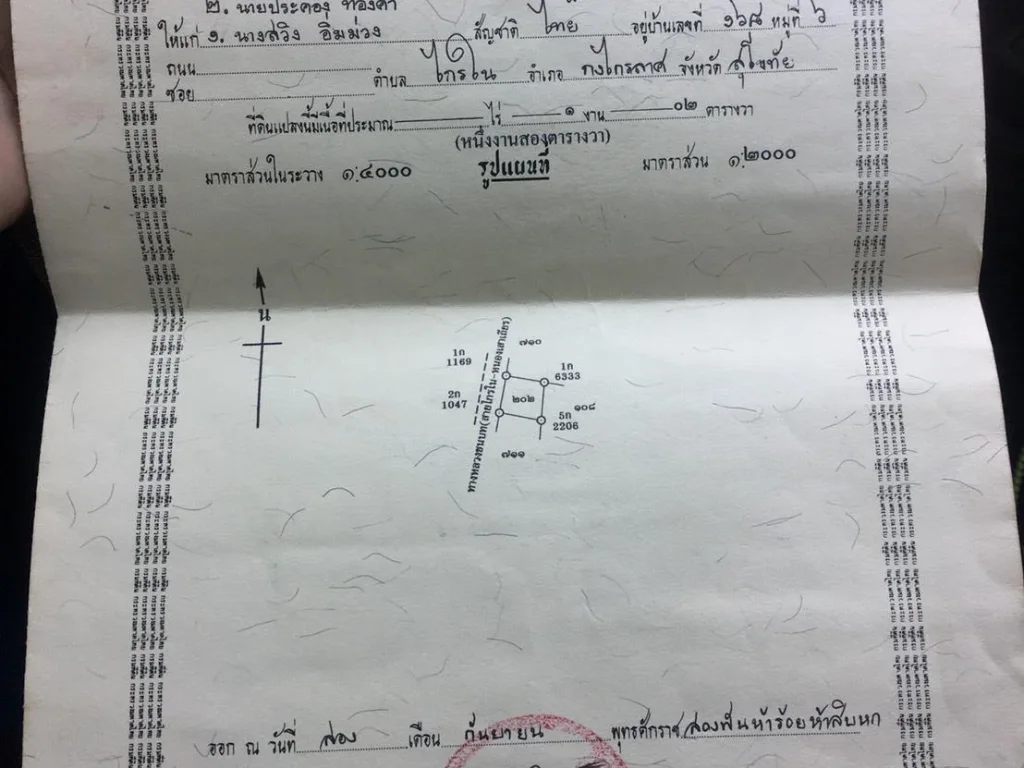 ๒. นายประคอง ทองคำ
ให้แก่ ๑. นางสวิง อิ่มม่วง สัญชาติ ไทย อยู่บ้านเลขที่ ๑๖๘ หมู่ที่ ๖
ถนน
ซอย ตำบล ไกรใน อำเภอ กงไกรลาศ จังหวัด สุโขทัย
ที่ดินแปลงนี้มีเนื้อที่ประมาณ ไร่ ๑ งาน ๐๒ ตารางวา
(หนึ่งงานสองตารางวา)
มาตราส่วนในระวาง ๑:๔๐๐๐ รูปแผนที่ มาตราส่วน ๑:๒๐๐๐
น
ทางหลวงชนบท(สายไกรใน-หนองเสาเถียร)
๗๑๐
1ก
1169
1ก
6333
2ก
1047
๒๐๒
๑๐๘
5ก
2206
๗๑๑
ออก ณ วันที่ สอง เดือน กันยายน พุทธศักราช สองพันห้าร้อยห้าสิบหก